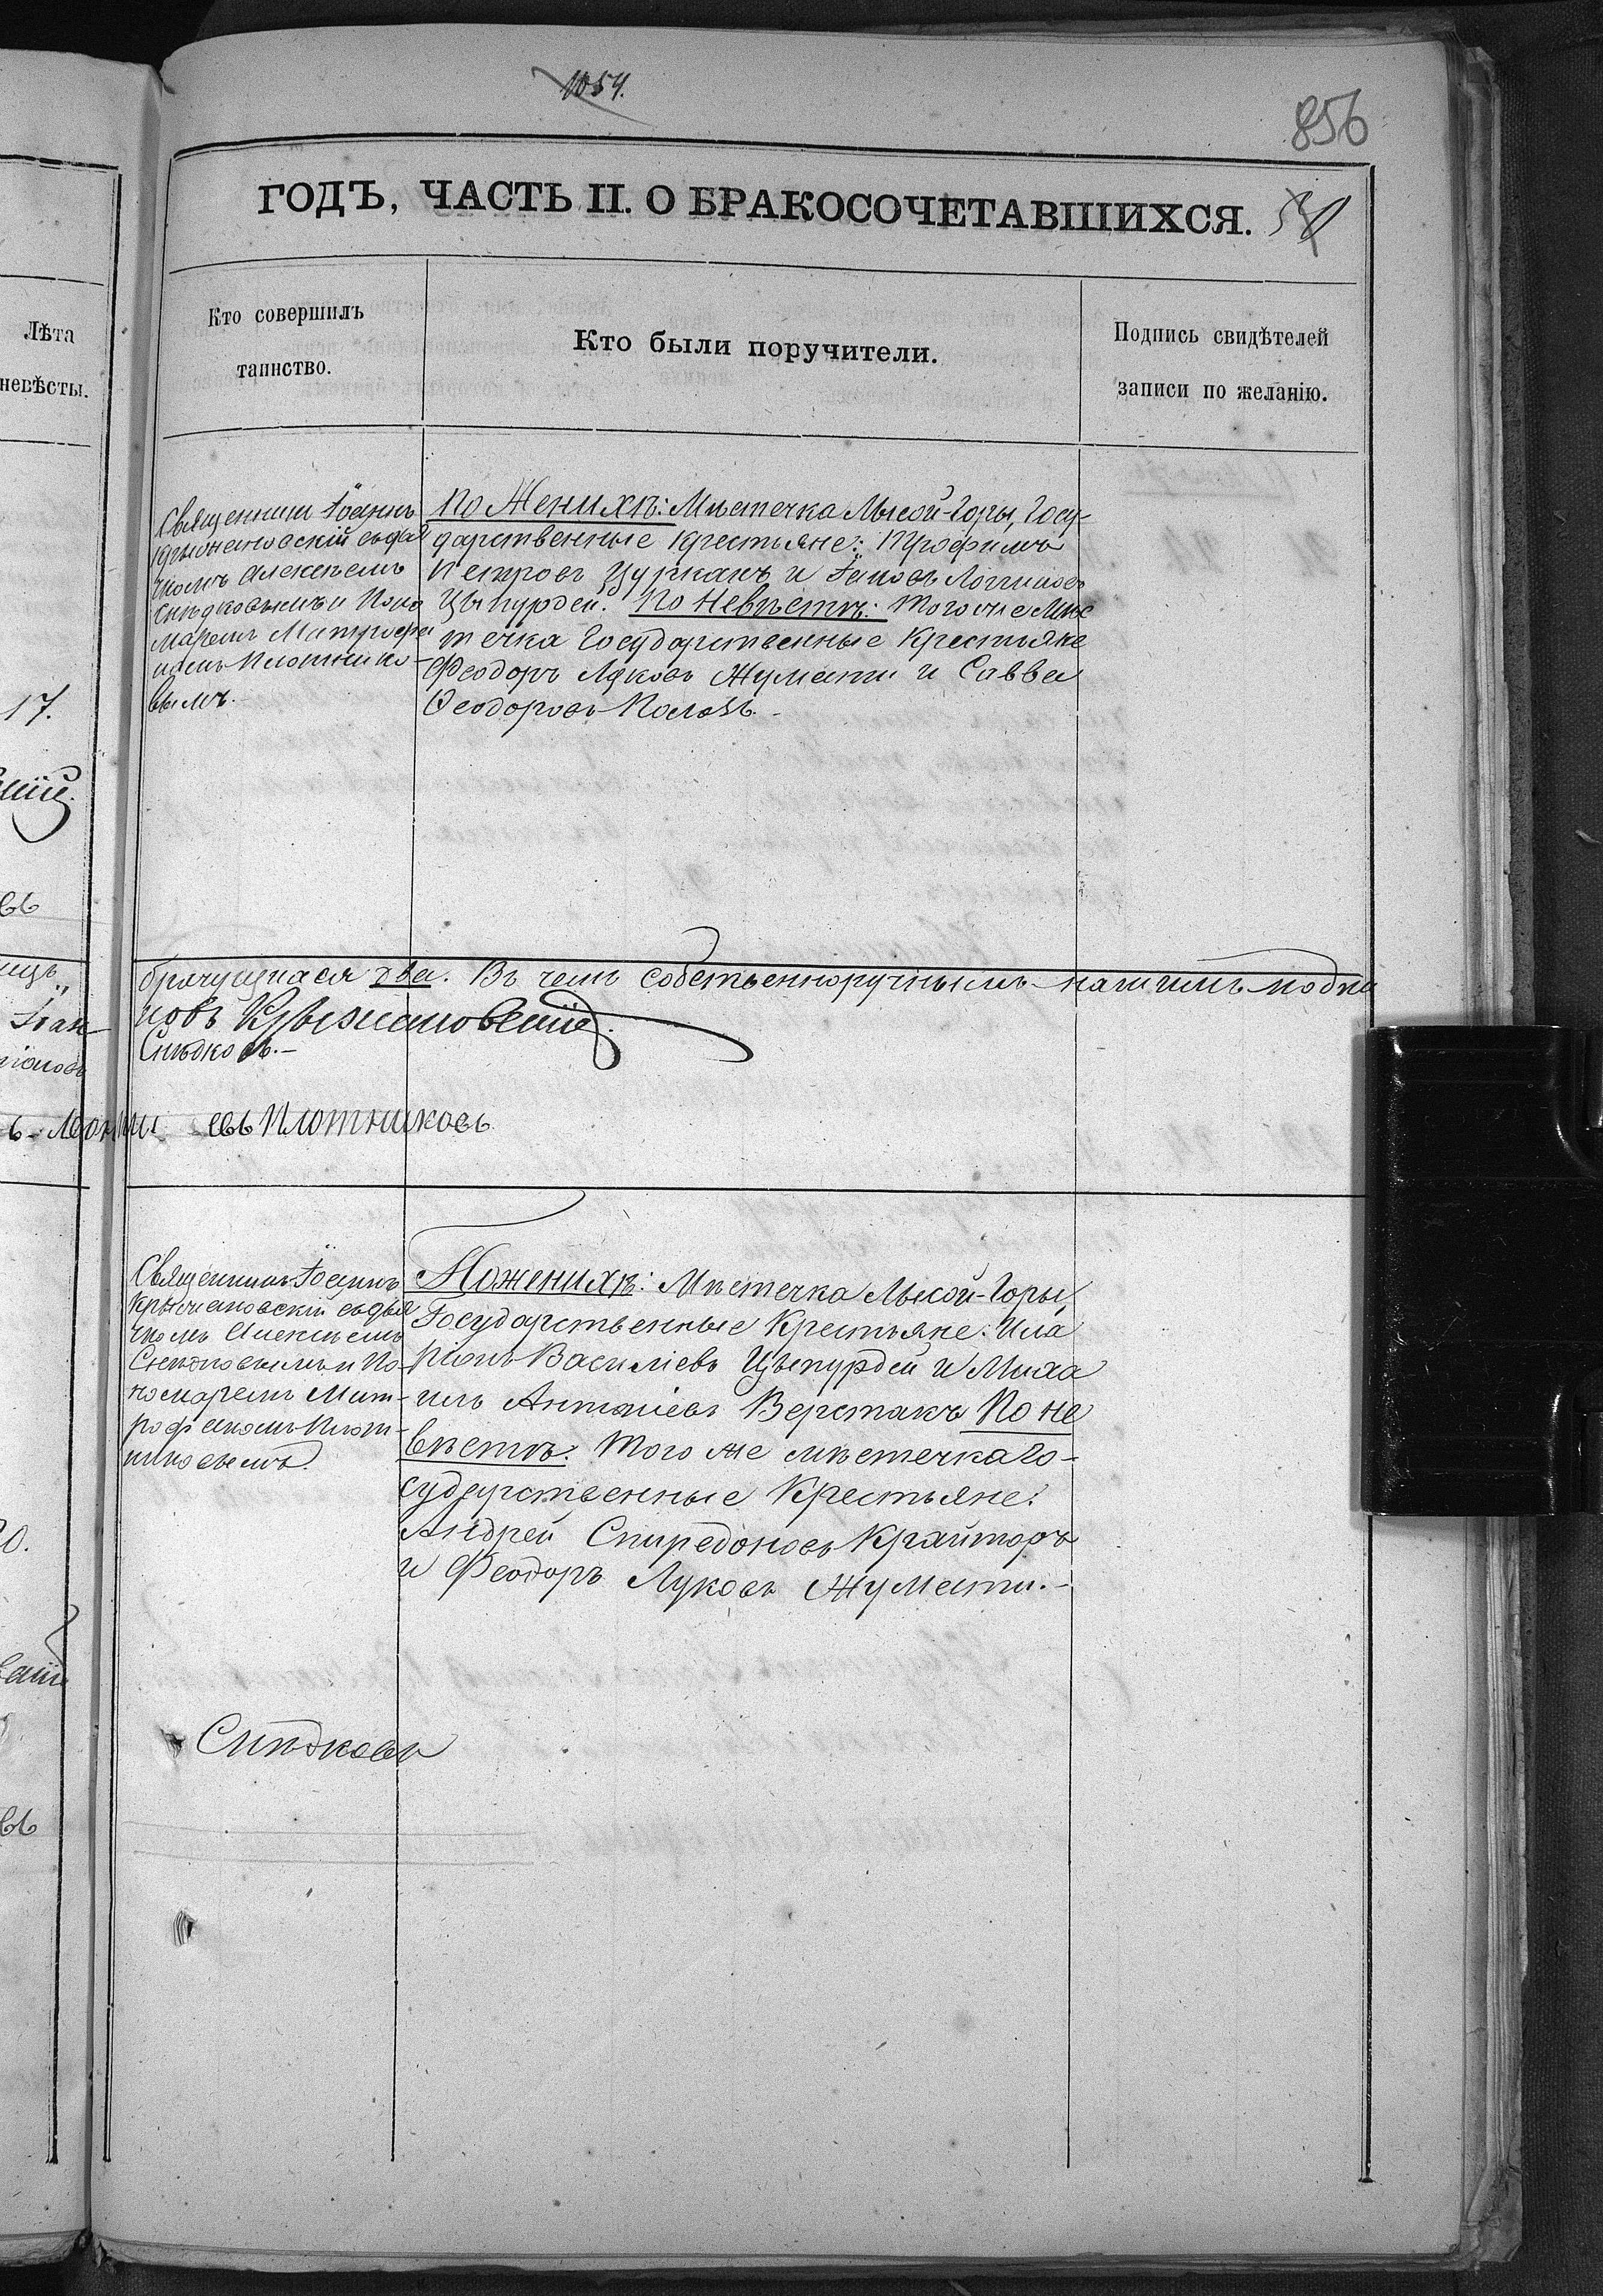 1054.
856
ГОДЪ, ЧАСТЬ II. О БРАКОСОЧЕТАВШИХСЯ.
Лѣта
невѣсты.
Кто совершилъ
таинство.
Кто были поручители.
Подпись свидѣтелей
записи по желанію.
17.
Священникъ Іоаннъ
Крыжановскій съ дья
чкомъ Алексѣемъ
Снѣдковымъ и Поно
маремъ Митрофа
номъ Плотнико-
вымъ.-
По Женихѣ: Мѣстечка Лысой-Горы, Госу-
дарственные Крестьяне: Трофимъ
Петровъ Цурканъ и Іаковъ Логгиновъ
Цыпурдей. По Невѣстѣ: Того же Мѣс
течка Государственные Крестьяне
Феодоръ Луковъ Жумати и Савва
Феодоровъ Полозъ.-
брачущиася два. Въ чемъ собственноручнымъ нашимъ подпи
новъ Крыжановскій.
Снѣдковъ.-
евъ Плотниковъ
Священникъ Іоаннъ
Крыжановскій съ дья
чкомъ Алексѣемъ
Снѣдковымъ и По-
номаремъ Мит-
рофаномъ Плот-
никовымъ.
По женихѣ: Мѣстечка Лысой-Горы,
Государственные Крестьяне: Ила
ріонъ Василіевъ Цыпурдей и Миха
илъ Антоніевъ Верстакъ По не
вѣстѣ: Того же мѣстечка Го-
сударственные Крестьяне:
Андрей Спиредоновъ Крайторъ
и Феодоръ Луковъ Жумати.-
Снѣдковъ